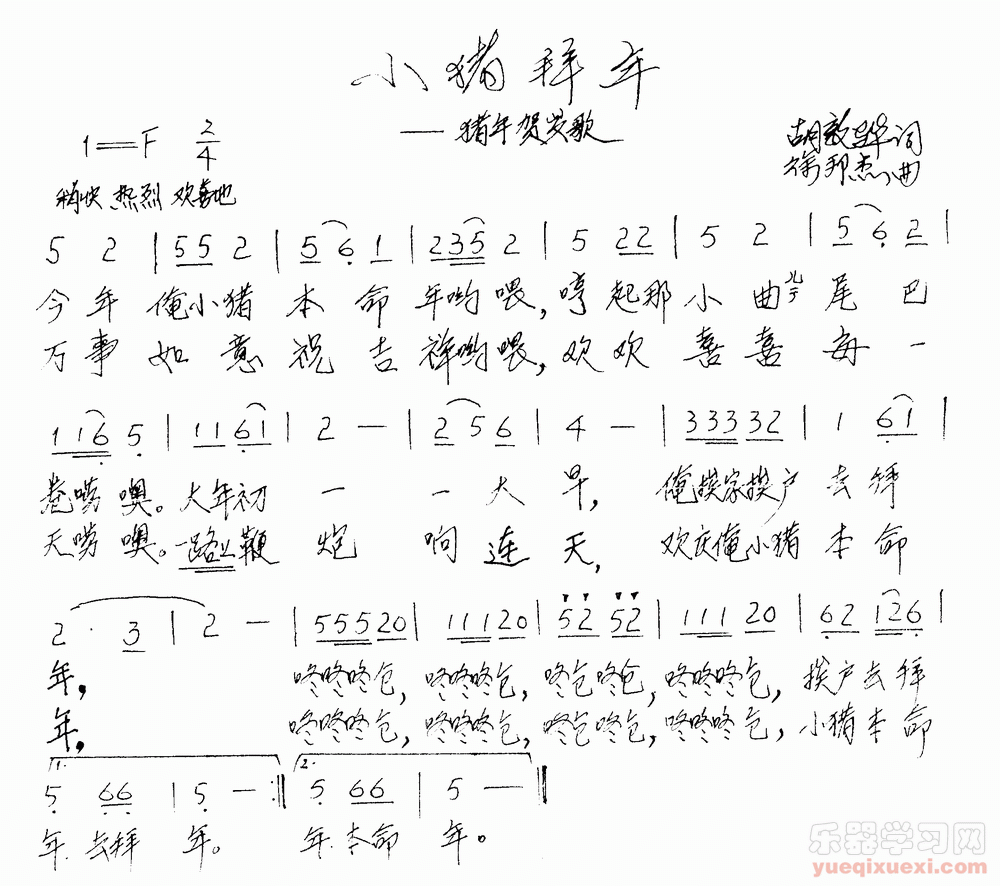 小猪拜年
——猪年贺岁歌
1=F 2/4
胡敦骅词
徐邦杰曲
稍快 热烈 欢喜地
5 2 | 5 5 2 | 5 6 1 | 2 3 5 2 | 5 2 2 | 5 2 | 5 6 2 |
今年俺小猪本命年哟喂,哼起那小曲儿尾巴
万事如意祝吉祥哟喂,欢欢喜喜每一
1 1 6 5 | 1 1 6 1 | 2 — | 2 5 6 | 4 — | 3 3 3 3 2 | 1 6 1 |
卷唠噢。大年初一一大早,俺挨家挨户去拜
天唠噢。一路上鞭炮响连天,欢庆俺小猪本命
2 · 3 | 2 — | 5 5 5 2 0 | 1 1 1 2 0 | 5 2 5 2 | 1 1 1 2 0 | 6 2 1 2 6 |
年,咚咚咚仓,咚咚咚仓,咚仓咚仓,咚咚咚仓,挨户去拜
年,咚咚咚仓,咚咚咚仓,咚仓咚仓,咚咚咚仓,小猪本命
1. 2.
5 6 6 | 5 — :‖ 5 6 6 | 5 — ‖
年.去拜年。年.本命年。
乐器学习网
yueqixuexi.com